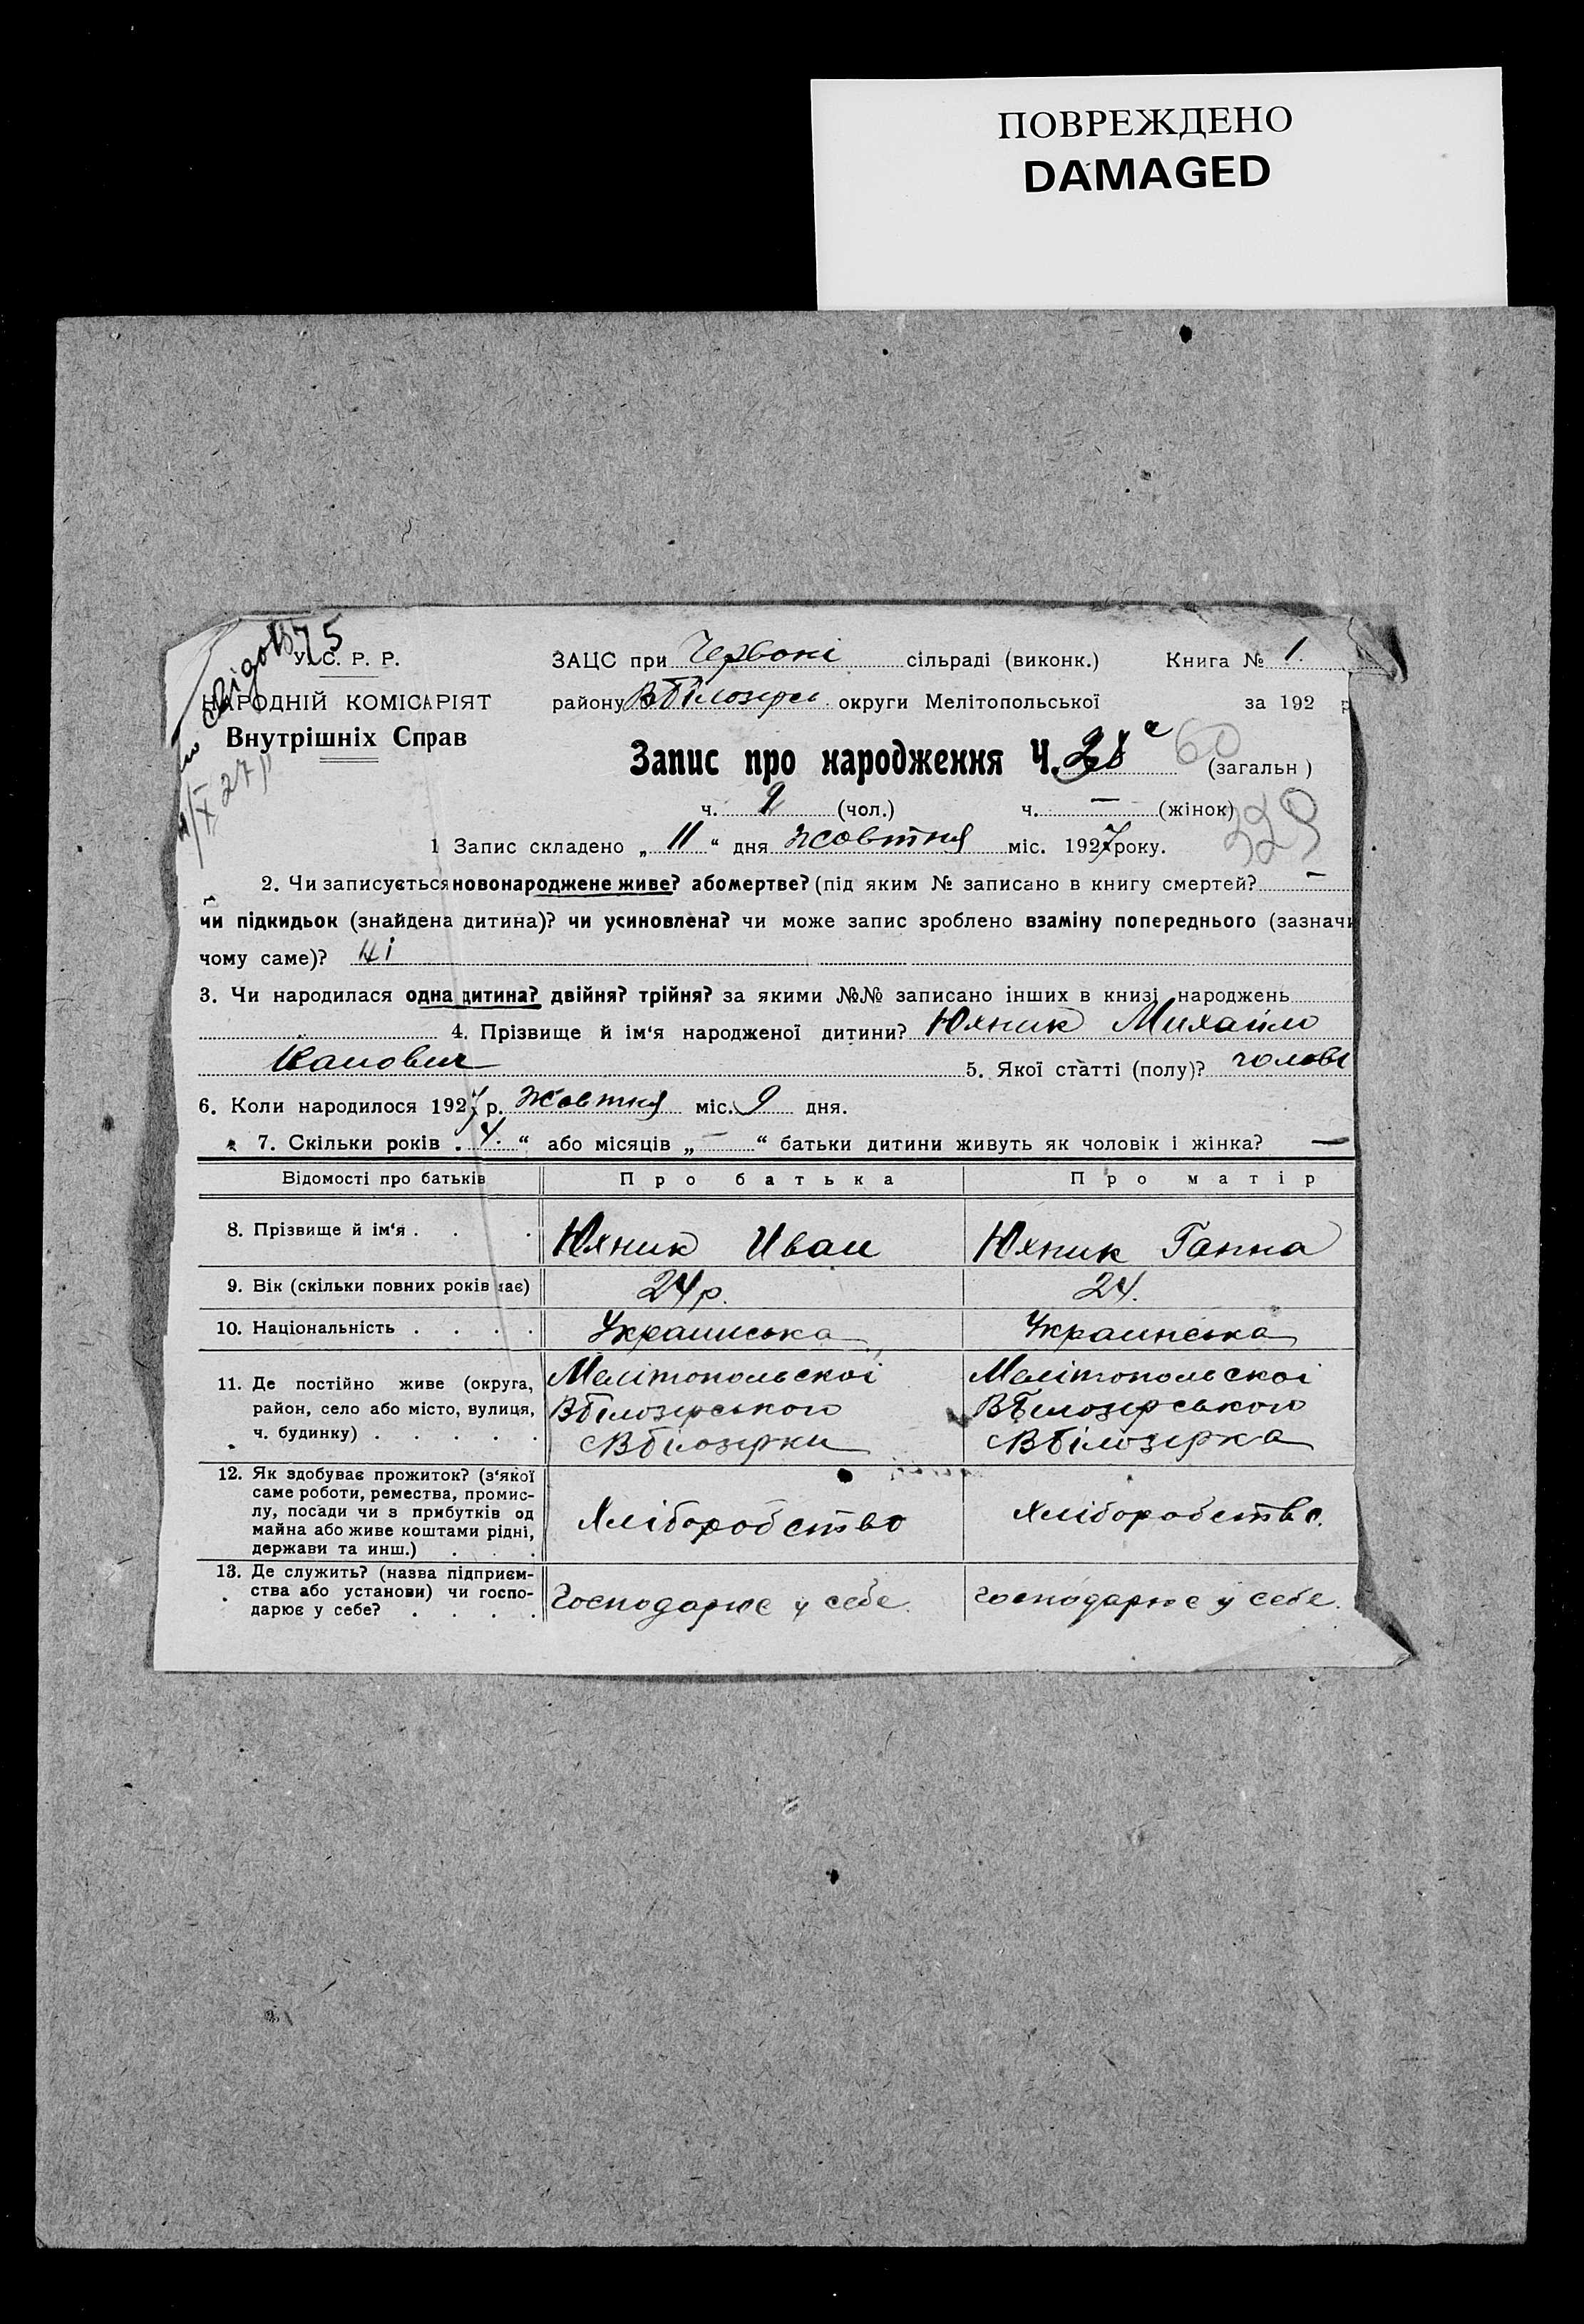 ПОВРЕЖДЕНО
DAMAGED
У. С. Р. Р.
НАРОДНІЙ КОМІСАРІЯТ
Внутрішніх Справ
ЗАЦС при Червоні сільраді (виконк.) Книга № 1.
району округи Мелітопольської за 192 р
Запис про народження Ч. 60 (загальн)
ч. (чол.) ч. — (жінок)
329
1 Запис складено „ 11 “ дня жовтня міс. 1927 року.
2. Чи записується новонароджене живе? або мертве? (під яким № записано в книгу смертей? —
чи підкидьок (знайдена дитина)? чи усиновлена? чи може запис зроблено взаміну попереднього (зазначи
чому саме)? ні
3. Чи народилася одна дитина? двійня? трійня? за якими №№ записано інших в книзі народжень
4. Прізвище й ім‘я народженої дитини? Юхник Михайло
Іванович 5. Якої статті (полу)? чолові
6. Коли народилося 1927 р. Жовтня міс. 9 дня.
7. Скільки років „ 4. “ або місяців „ — “ батьки дитини живуть як чоловік і жінка? —
Відомості про батьків Про батька Про матір
8. Прізвище й ім‘я . . . Юхник Иван Юхник Ганна
9. Вік (скільки повних років має) 24 р. 24.
10. Національність . . . . Украинська Украинська
11. Де постійно живе (округа, Мелітопольскої Мелітопольскої
район, село або місто, вулиця, ВБілозірського ВБілозірського
ч. будинку) . . . . . с ВБілозірки с ВБілозірка
12. Як здобуває прожиток? (з‘якої
саме роботи, ремества, промис-
лу, посади чи з прибутків од Хліборобство Хліборобство
майна або живе коштами рідні,
держави та инш.) . . .
13. Де служить? (назва підприєм-
ства або установи) чи госпо- Господарює у себе. господарює у себе.
дарює у себе? . . . .